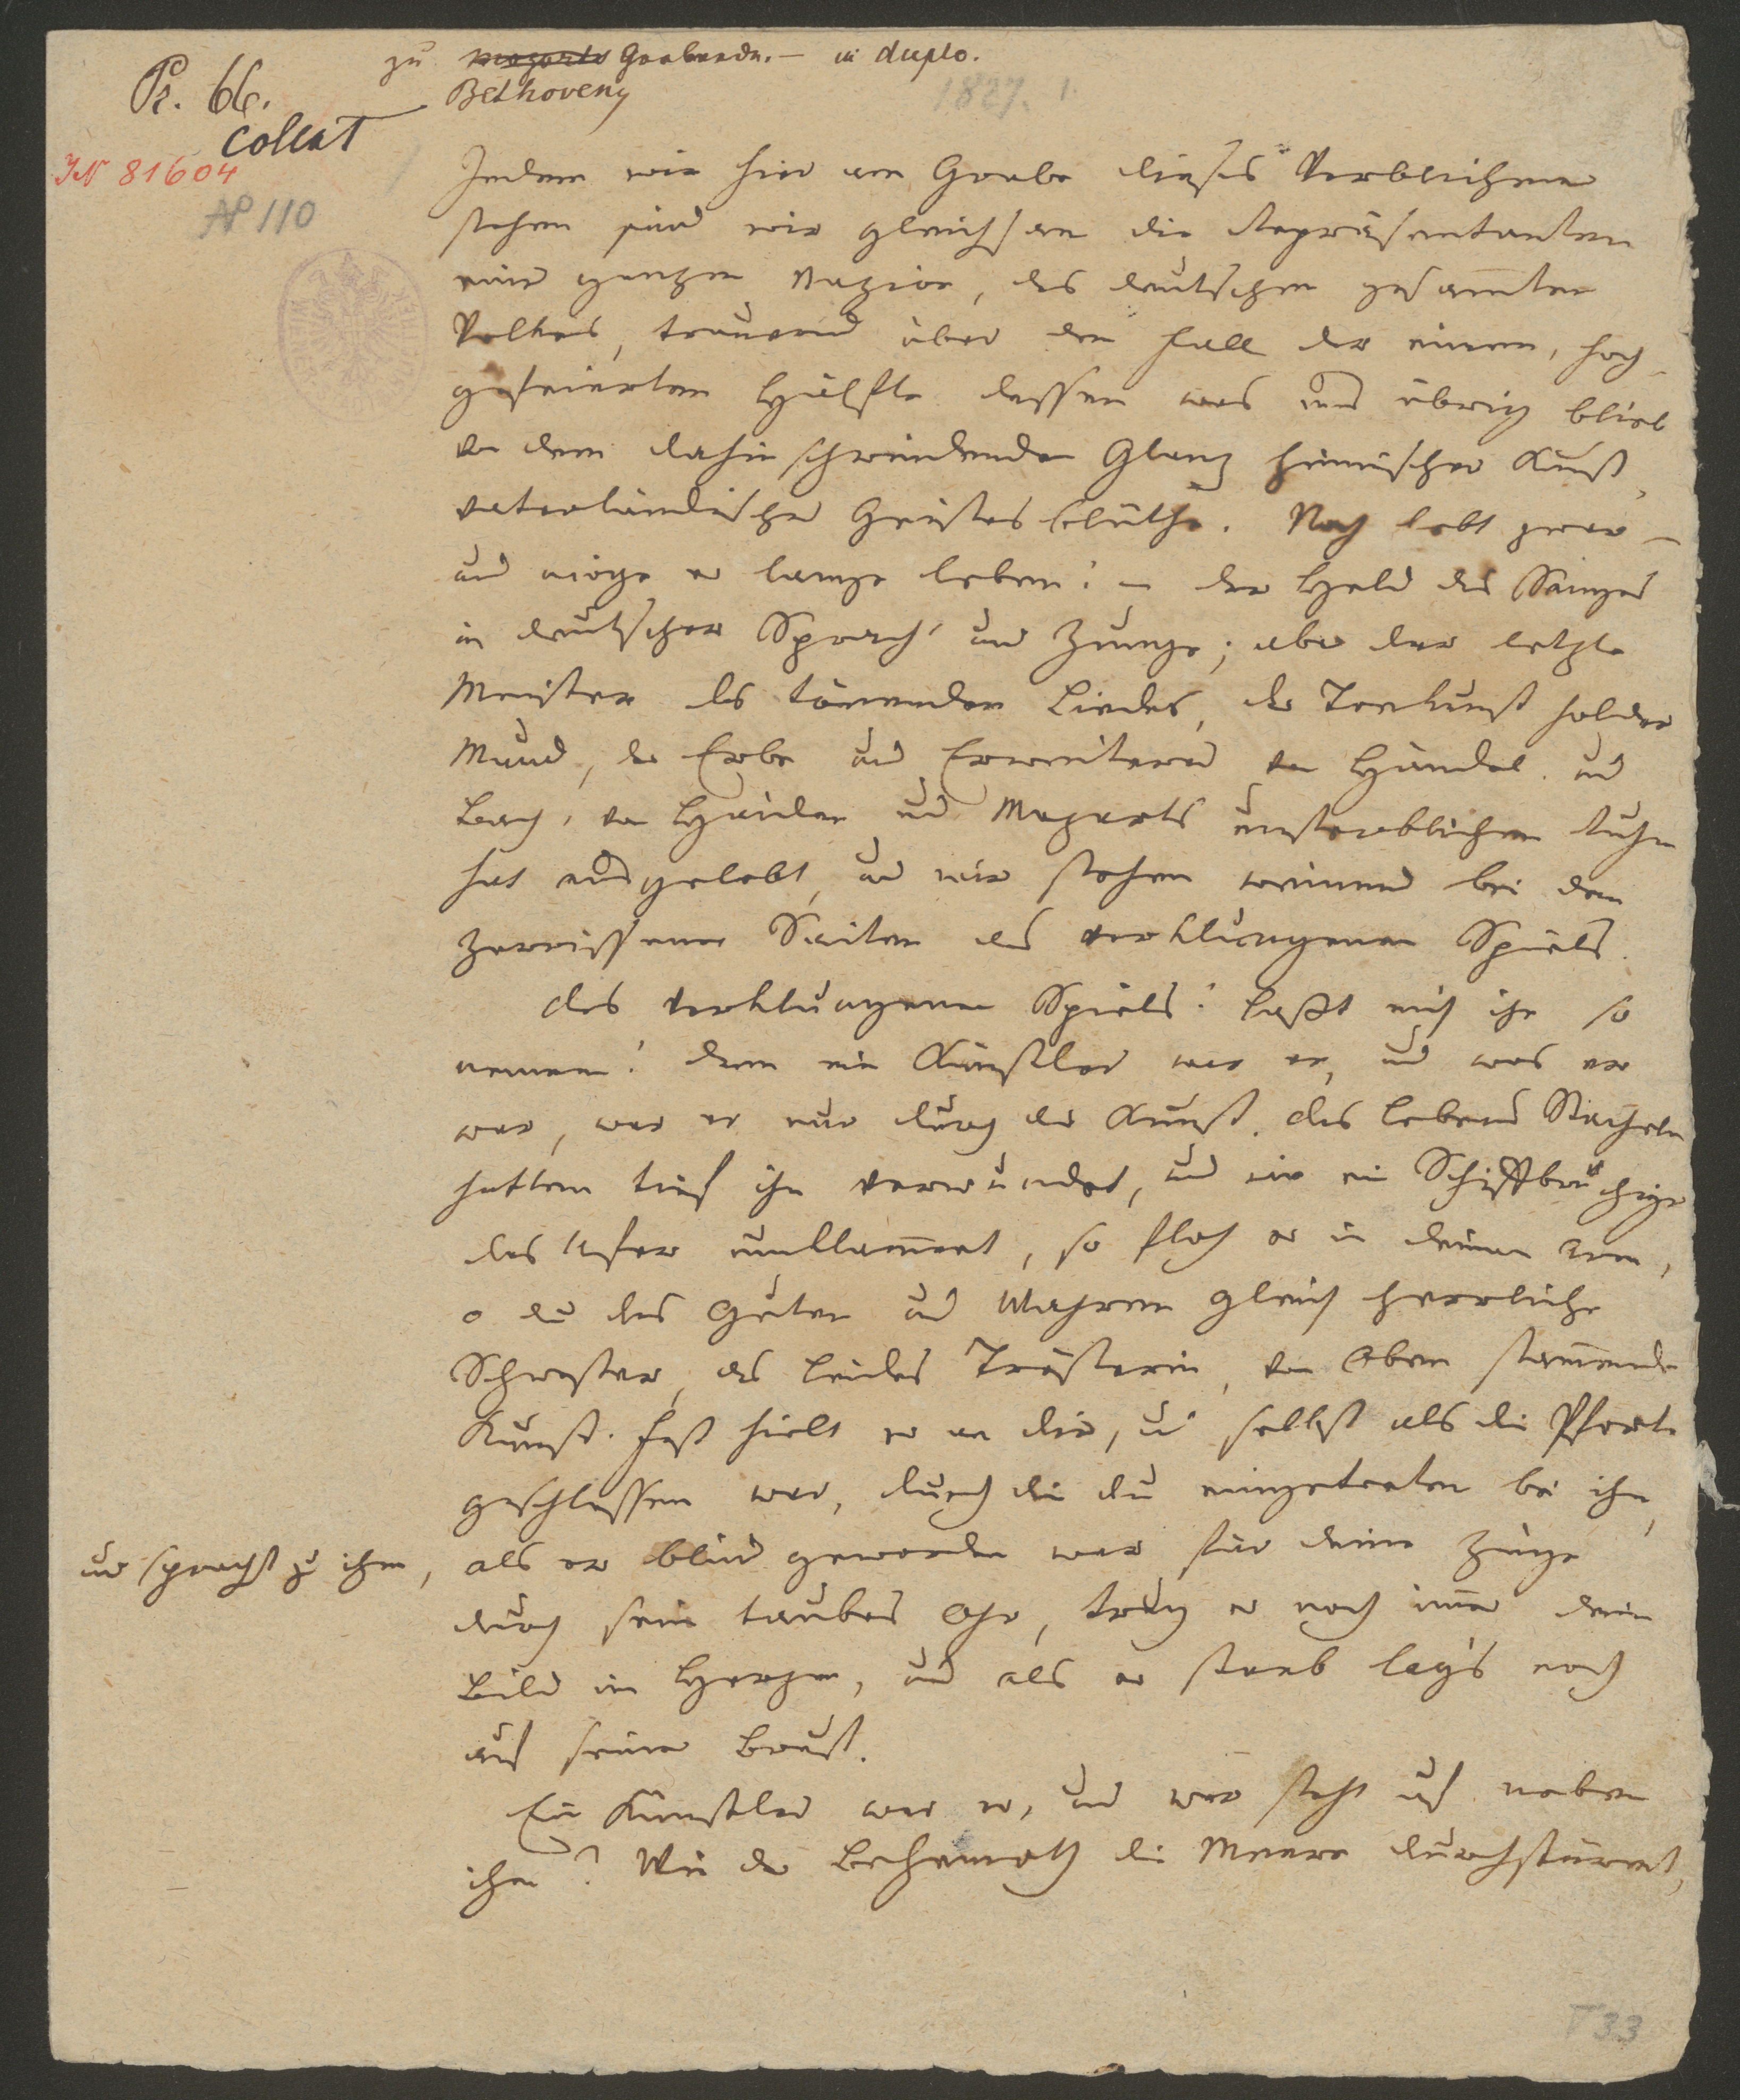 Pr. 66.
collat
JN 81604
AP 110
zu Mozarts Grabrede. — in duplo.
Bethovens
1827. 1.
Indem wir hier am Grabe dieses Verblichenen
stehen sind wir gleichsam die Repräsentanten
einer ganzen Nazion, des deutschen gesam̄ten
Volkes, trauernd über den Fall der einen, hoch
gefeierten Hälfte dessen was uns übrig blieb
von dem dahin schwindenden Glanz heimischer Kunst,
vaterländischer Geistesblüthe. Noch lebt zwar –
und möge er lange leben! – der Held des Sanges
in deutscher Sprach' und Zunge; aber der letzte
Meister des tönenden Liedes, der Tonkunst holder
Mund, der Erbe und Erweiterer von Händel und
Bach, von Haiden und Mozarts unsterblichem Ruhm
hat ausgelebt, und wir stehen weinend bei den
zerrissenen Saiten des verklungenen Spiels.
Des verklungenen Spiels! Laßt mich ihn so
nennen! Denn ein Künstler war er, und was er
war, war er nur durch die Kunst. Des Lebens Stacheln
hatten tief ihn verwundet, und wie ein Schiffbrüchiger
das Ufer umklam̄ert, so floh er in deinen Arm,
o du des Guten und Wahren gleich herrliche
Schwester, des Leides Trösterin, von Oben stam̄ende
Kunst. Fest hielt er an dir, u selbst als die Pforte
geschlossen war, durch die du eingetreten bei ihm,
und sprachst zu ihm,
als er blind geworden war für deine Züge
durch sein taubes Ohr, trug er noch im̄er dein
Bild im Herzen, und als er starb lag's noch
auf seiner Brust.
Ein Künstler war er, und wer steht auf neben
ihm? Wie der Behemoth die Meere durchstürmt,
T 33